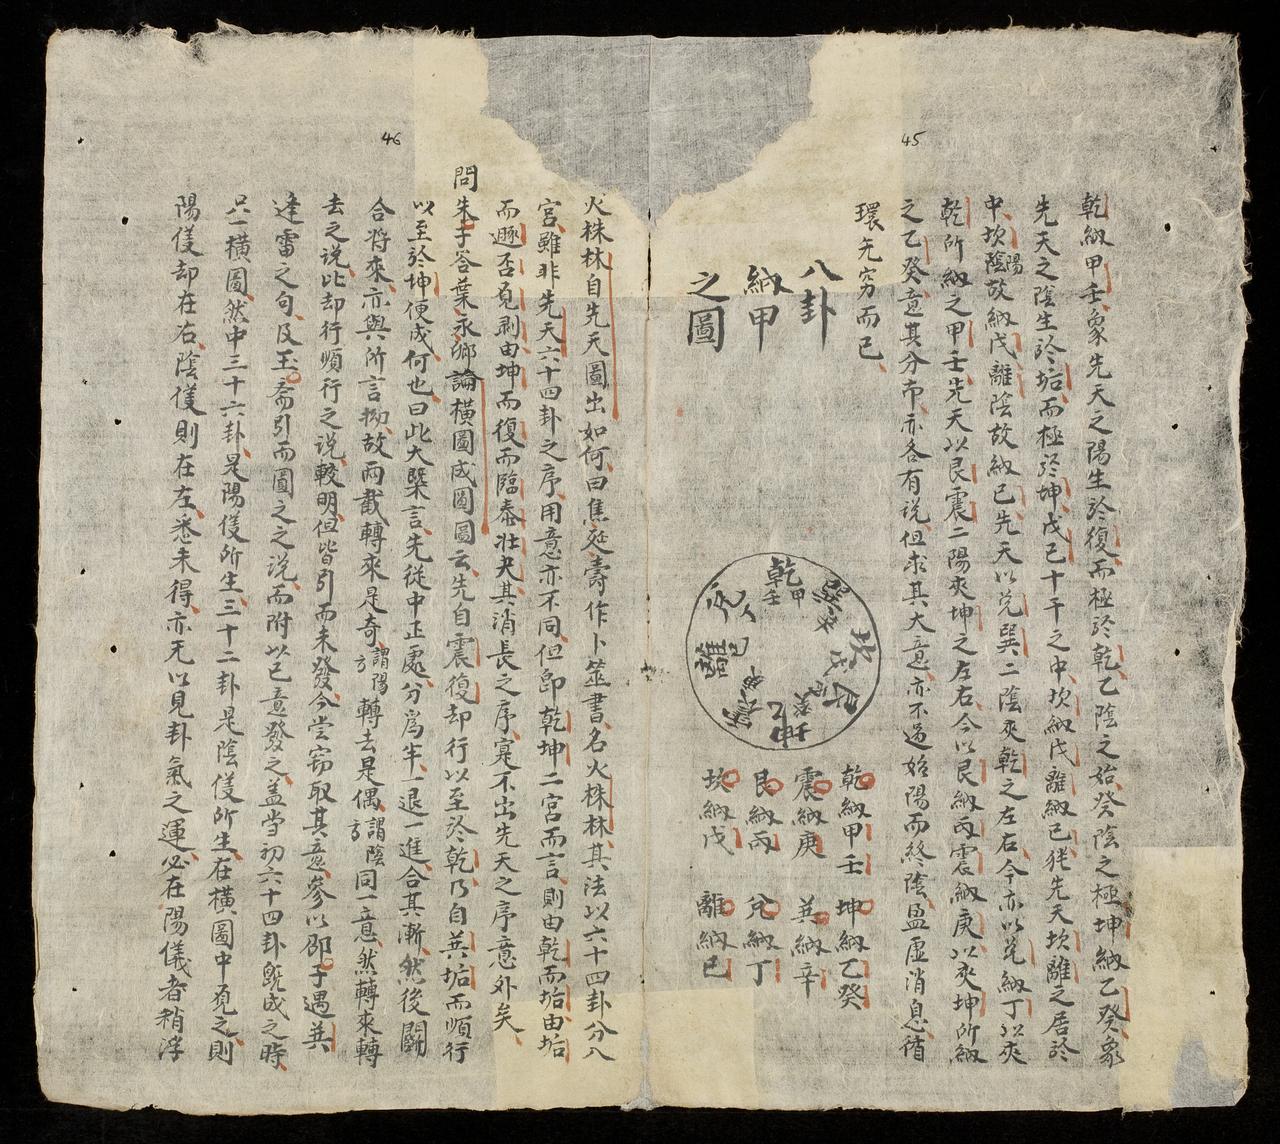 45
乾納甲壬象先天之陽生於復而極於乾乙陰之始癸陰之極坤納乙癸象
先天之陰生於垢而極於坤戊己十干之中坎納戊離納己猶先天坎離之居於
中坎陰陽故納戊離陰故納己先天以兌巽二陰夾乾之左右今亦以兌納丁以夾
乾所納之甲壬先天以艮震二陽夾坤之左右今以艮納丙震納庚以夾坤所納
之乙癸意其分布亦各有説但求其大意亦不過始陽而終陰盈虛消息循
環无窮而已
八卦
納甲
之圖
乾甲壬
坎戊
艮丙
坤乙
離己
乾納甲壬 坤納乙癸
震納庚 巽納辛
艮納丙 兌納丁
坎納戊 離納己
46
火株林自先天圖出如何曰焦延壽作卜筮書名火株林其法以六十四卦分八
宮雖非先天六十四卦之序用意亦不同但即乾坤二宮而言則由乾而垢由垢
而遯否觀剥由坤而復而臨泰壯夬其消長之序寔不出先天之序意外矣
問朱子答葉永卿論横圖成圓圖云先自震復却行以至於乾乃自巽垢而順行
以至於坤便成何也曰此大槩言先從中正處分爲半一退一進合其漸然後闢
合將來亦與所言拗故兩截轉來是奇謂陽方轉去是偶謂陰方同一意然轉來轉
去之説比却行順行之説較明但皆引而未發今嘗窃取其意參以邵子遇巽
逢雷之句及玉齋引而圖之之説而附以已意發之盖當初六十四卦既成之時
只一横圖然中三十六卦是陽儀所生三十二卦是陰儀所生在横圖中觀之則
陽儀却在右陰儀則在左悉未得亦无以見卦氣之運必在陽儀者稍浮